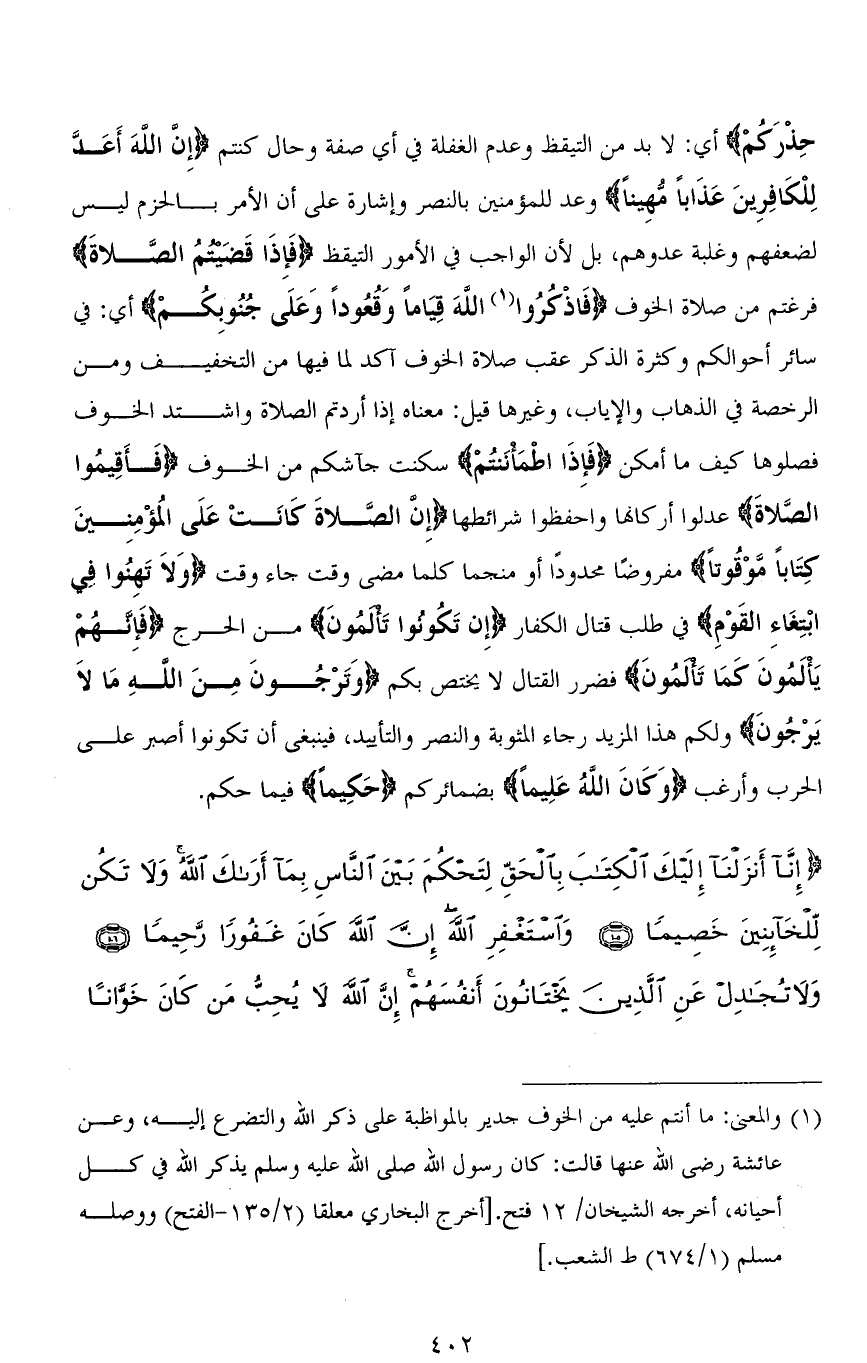 حِذْرَكُمْ﴾ أي: لا بد من التيقظ وعدم الغفلة في أي صفة وحال كنتم ﴿إِنَّ اللَّهَ أَعَدَّ
لِلْكَافِرِينَ عَذَاباً مُّهِيناً﴾ وعد للمؤمنين بالنصر وإشارة على أن الأمر بالحزم ليس
لضعفهم وغلبة عدوهم، بل لأن الواجب في الأمور التيقظ ﴿فَإِذَا قَضَيْتُمُ الصَّلاةَ﴾
فرغتم من صلاة الخوف ﴿فَاذْكُرُوا(١) اللَّهَ قِيَاماً وَقُعُوداً وَعَلَى جُنُوبِكُمْ﴾ أي: في
سائر أحوالكم وكثرة الذكر عقب صلاة الخوف آكد لما فيها من التخفيف ومن
الرخصة في الذهاب والإياب، وغيرها قيل: معناه إذا أردتم الصلاة واشتد الخوف
فصلوها كيف ما أمكن ﴿فَإِذَا اطْمَأْنَنتُمْ﴾ سكنت جآشكم من الخوف ﴿فَأَقِيمُوا
الصَّلاةَ﴾ عدلوا أركانها واحفظوا شرائطها ﴿إِنَّ الصَّلاةَ كَانَتْ عَلَى الْمُؤْمِنِينَ
كِتَاباً مَّوْقُوتاً﴾ مفروضًا محدودًا أو منجما كلما مضى وقت جاء وقت ﴿وَلاَ تَهِنُوا فِي
ابْتِغَاءِ القَوْمِ﴾ في طلب قتال الكفار ﴿إِن تَكُونُوا تَأْلَمُونَ﴾ من الحرج ﴿فَإِنَّهُمْ
يَأْلَمُونَ كَمَا تَأْلَمُونَ﴾ فضرر القتال لا يختص بكم ﴿وَتَرْجُونَ مِنَ اللَّهِ مَا لاَ
يَرْجُونَ﴾ ولكم هذا المزيد رجاء المثوبة والنصر والتأييد، فينبغى أن تكونوا أصبر على
الحرب وأرغب ﴿وَكَانَ اللَّهُ عَلِيماً﴾ بضمائركم ﴿حَكِيماً﴾ فيما حكم.
﴿إِنَّآ أَنزَلْنَآ إِلَيْكَ ٱلْكِتَٰبَ بِٱلْحَقِّ لِتَحْكُمَ بَيْنَ ٱلنَّاسِ بِمَآ أَرَىٰكَ ٱللَّهُ ۚ وَلَا تَكُن
لِّلْخَآئِنِينَ خَصِيمًا ١٠٥ وَٱسْتَغْفِرِ ٱللَّهَ ۖ إِنَّ ٱللَّهَ كَانَ غَفُورًا رَّحِيمًا ١٠٦
وَلَا تُجَٰدِلْ عَنِ ٱلَّذِينَ يَخْتَانُونَ أَنفُسَهُمْ ۚ إِنَّ ٱللَّهَ لَا يُحِبُّ مَن كَانَ خَوَّانًا
(١) والمعنى: ما أنتم عليه من الخوف جدير بالمواظبة على ذكر الله والتضرع إليه، وعن
عائشة رضى الله عنها قالت: كان رسول الله صلى الله عليه وسلم يذكر الله في كل
أحيانه، أخرجه الشيخان/ ١٢ فتح.[أخرج البخاري معلقا (١٣٥/٢-الفتح) ووصله
مسلم (٦٧٤/١) ط الشعب.]
٤٠٢